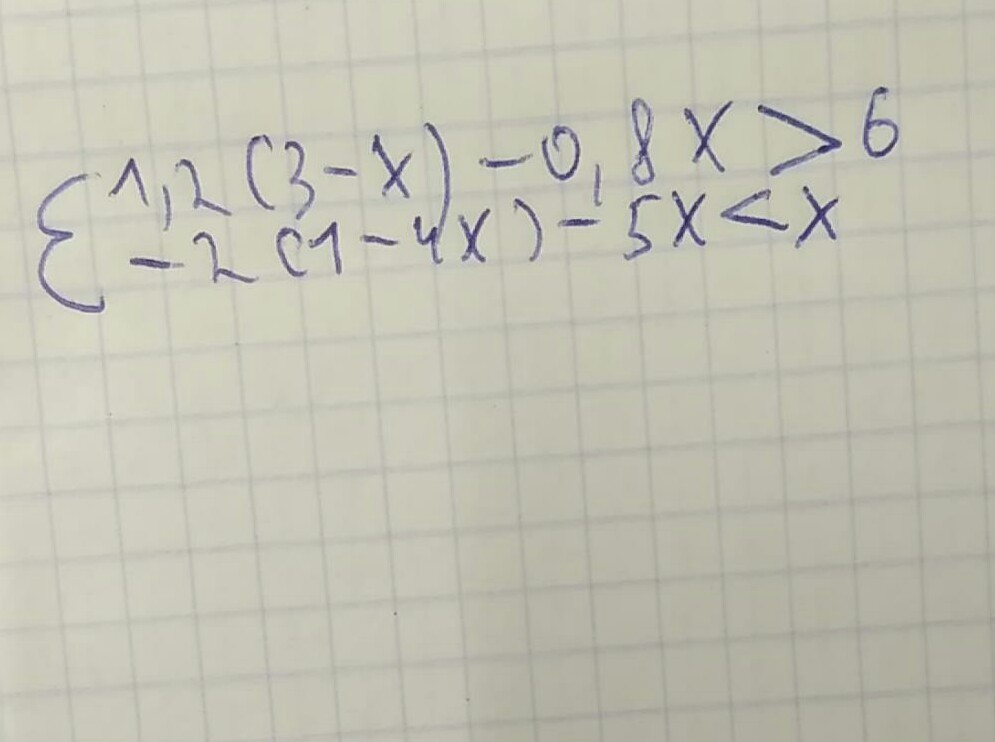 { 1,2 (3 - x) - 0,8 x > 6
- 2 (1 - 4x) - 5x < x